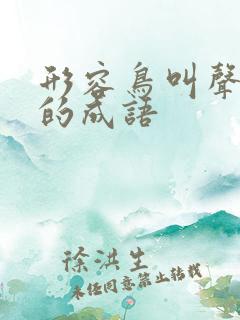 形容鳥叫聲
的成語
徐洪生
未經同意禁止轉載